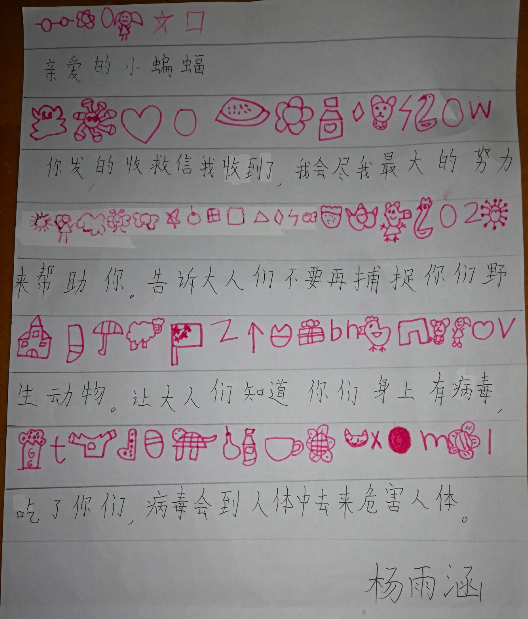 亲爱的小蝙蝠
你发的收救信我收到了,我会尽我最大的努力
来帮助你。告诉大人们不要再捕捉你们野
生动物。让大人们知道你们身上有病毒,
吃了你们,病毒会到人体中去来危害人体。
杨雨涵